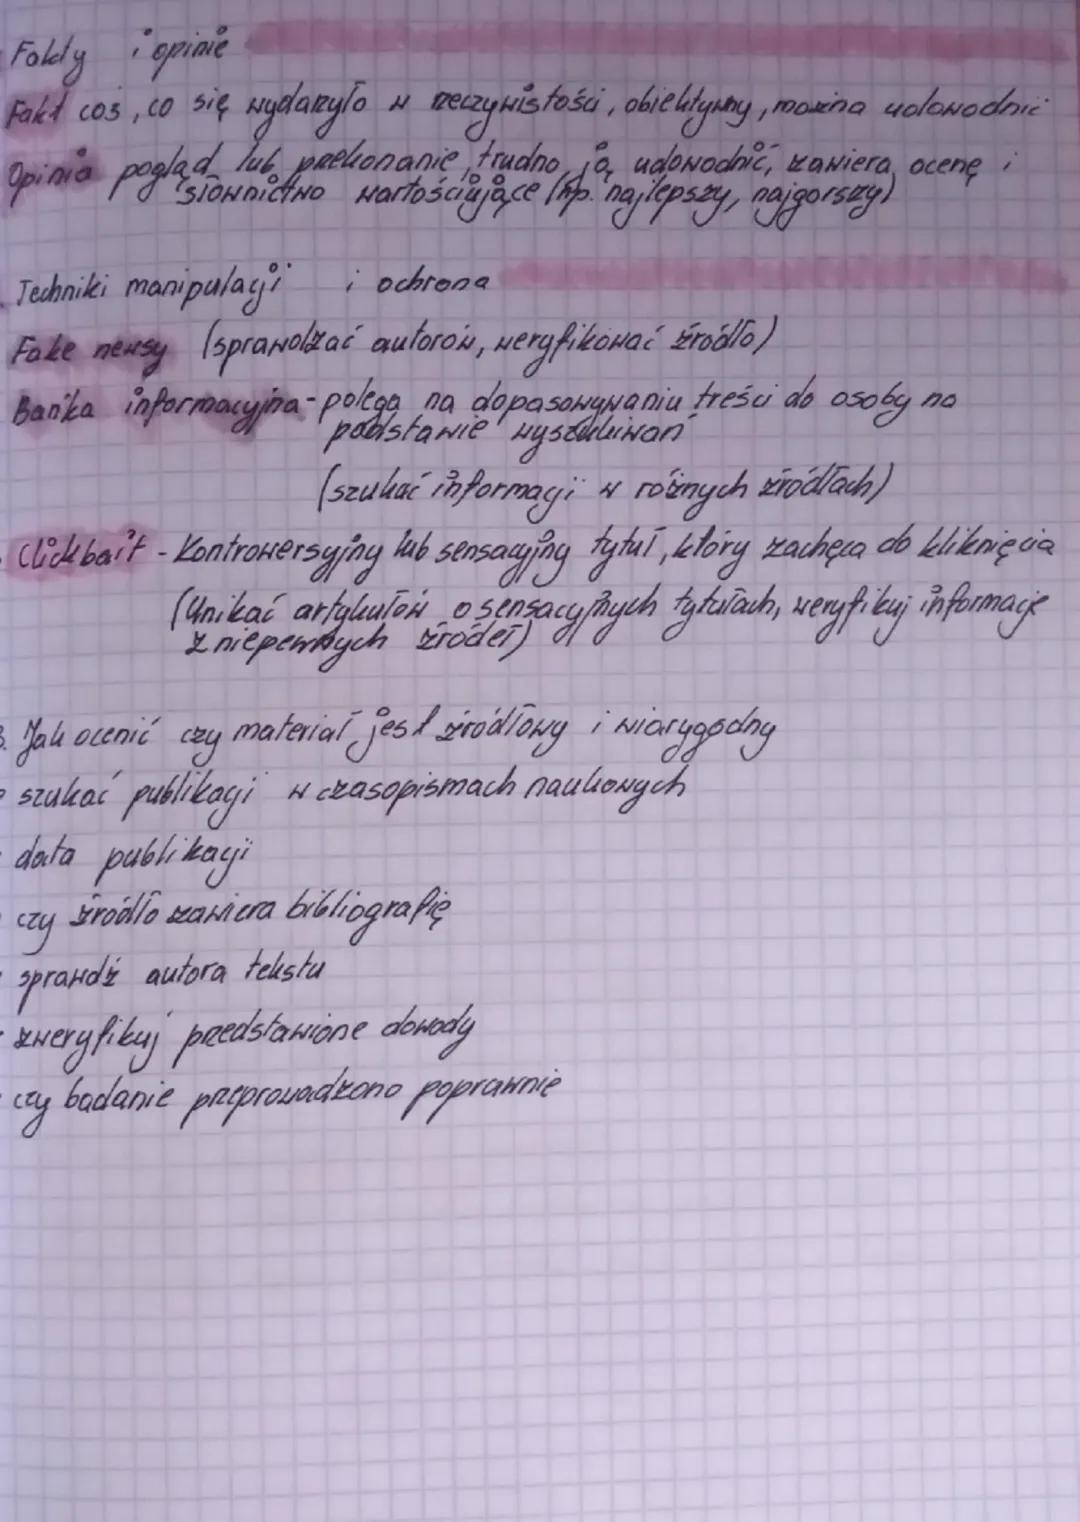 Fakty i opinie
Fakt coś, co się wydarzyło w rzeczywistości, obiektywny, można udowodnić
Opinia pogląd lub przekonanie, trudno ją udowodnić, zawiera ocenę i
słownictwo wartościujące (np. najlepszy, najgorszy)
Techniki manipulacji i ochrona
Fake newsy (sprawdzać autorów, weryfikować źródło)
Bańka informacyjna - polega na dopasowywaniu treści do osoby na
podstawie wyszukiwań
(szukać informacji w różnych źródłach)
- Clickbait - Kontrowersyjny lub sensacyjny tytuł, który zachęca do kliknięcia
(Unikać artykułów o sensacyjnych tytułach, weryfikuj informacje
z niepewnych źródeł)
3. Jak ocenić czy materiał jest źródłowy i wiarygodny
- szukać publikacji w czasopismach naukowych
- data publikacji
- czy źródło zawiera bibliografię
- sprawdź autora tekstu
- zweryfikuj przedstawione dowody
- czy badanie przeprowadzono poprawnie